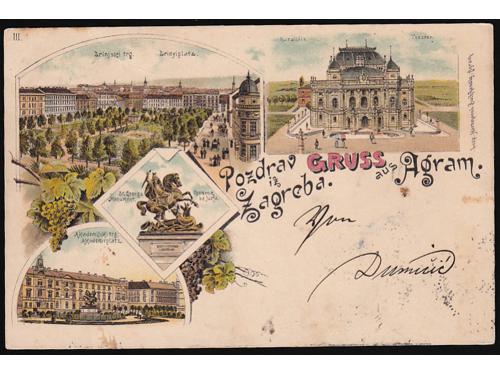 III.
Zrinjski trg. Zrinyiplatz.
Kazalište Theater.
St. Georg Monument Spomenik sv. Jurja
Akademički trg. Akademieplatz.
Pozdrav iz Zagreba.
GRUSS aus Agram.
Von